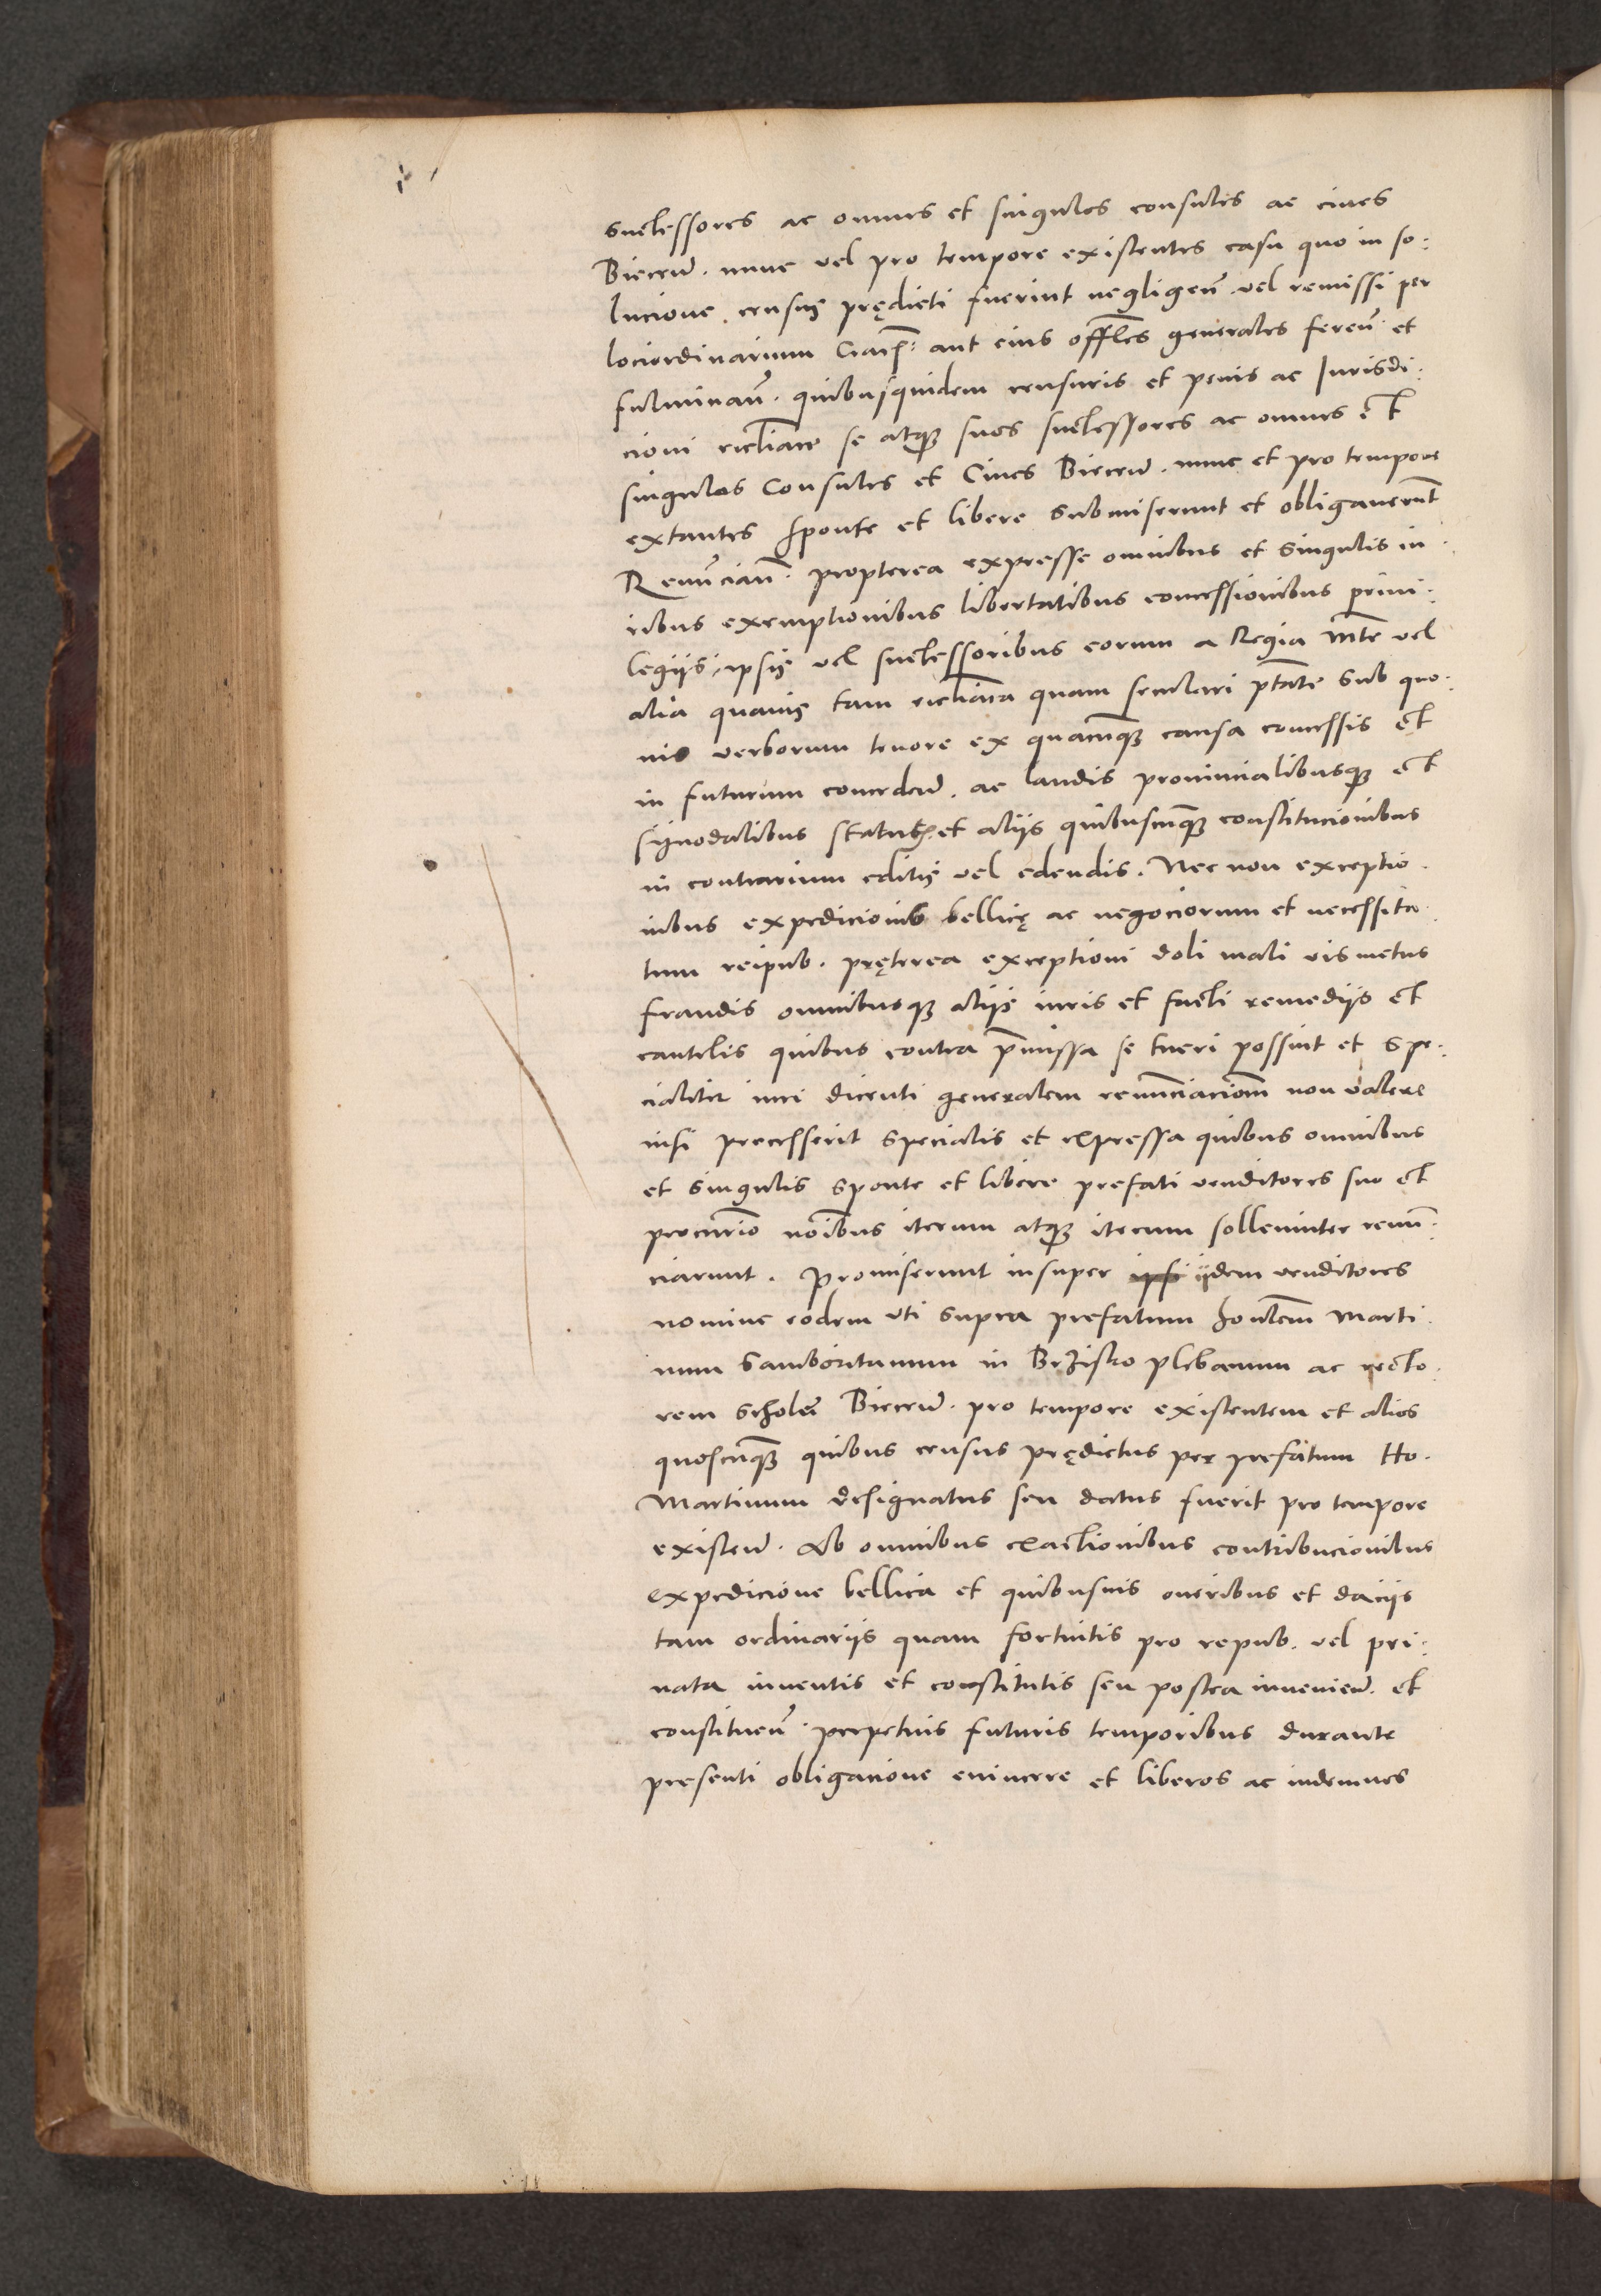 successores ac omnes et singulos consules ac cives
Biecen̄. nunc vel pro tempore existentes casu quo in so:
lucione census prędicti fuerint negligen̄. vel remissi per
lociordinarium Crac̄. aut eius offles generales feren̄. et
fulminan̄. quibusquidem censuris et penis ac Jurisdi:
cioni ecclīace se atq3 suos successores ac omnes et
singulos Consules et Cives Biecen̄. nunc et pro tempore
extantes sponte et libere submiserunt et obligaverūt
Renūcian̄. propterea expresse omnibus et singulis iu:
ribus exemptionibus libertatibus concessionibus privi:
legiis ipsis vel successoribus eorum a Regia mte vel
alia quavis tam ecclīaca quam seculari ptate sub quo:
vis verborum tenore ex quacūq3 causa concessis et
in futurum conceden̄. ac laudis provincialibusq3 et
synodalibus statutis et aliis quibuscūq3 constitucionibus
in contrarium editis vel edendis. Nec non exceptio.
nibus expedicionis bellicę ac negociorum et necessita.
tum reipub. pręterea exceptioni doli mali vis metus
fraudis omnibusq3 aliis iuris et facti remediis et
cautelis quibus contra pmissa se tueri possint et spe:
cialiter iuri dicenti generalem renūciacionē non valere
nisi precesserit specialis et expressa quibus omnibus
et singulis sponte et libere prefati venditores suo et
procurio noibus iterum atq3 iterum solleniter renū:
ciarunt. Promiserunt insuper ipsi iidem venditores
nomine eodem uti supra prefatum honlem Marti.
num Samboritanum in Bržisko plebanum ac recto.
rem scholę Biecen̄. pro tempore existentem et alios
quoscūq3 quibus census prędictus per prefatum Ho.
Martinum designatus seu datus fuerit pro tempore
existen̄. Ab omnibus exactionibus contribucionibus
expedicione bellica et quibusvis oneribus et daciis
tam ordinariis quam fortuitis pro repub. vel pri:
vata inventis et constitutis seu postea invenien̄. et
constituen̄. perpetuis futuris temporibus durante
presenti obligacione evincere et liberos ac indemnes